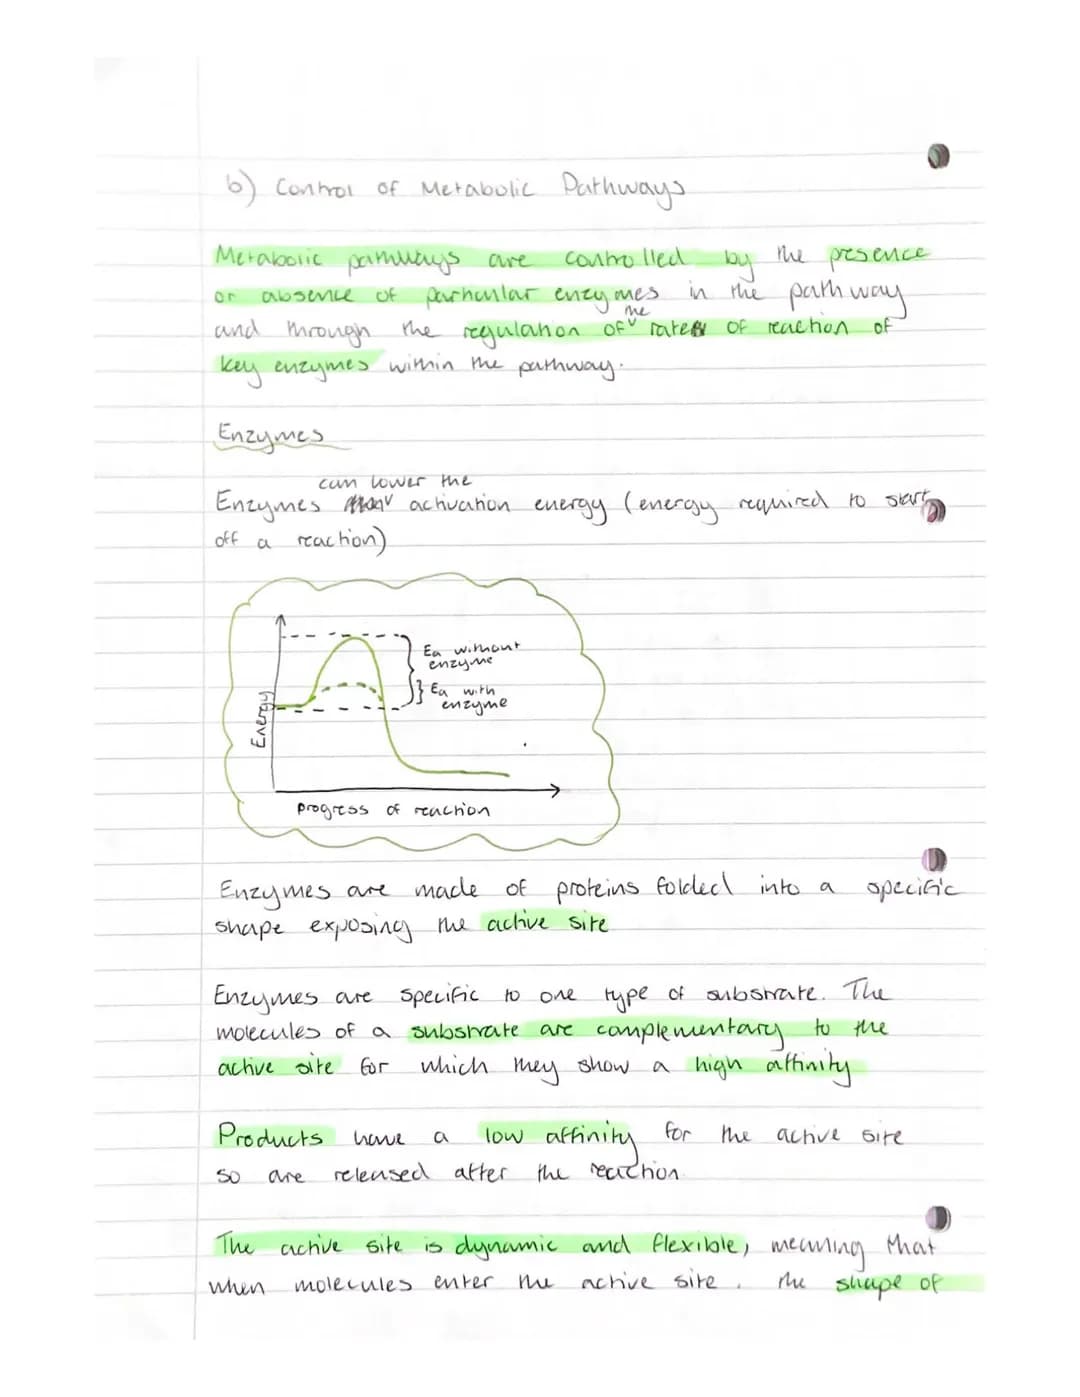 b) Control of Metabolic Pathways
Metabolic pathways are controlled by the presence
or absence of particular enzymes in the pathway
and through the regulation of the rate of reaction of
key enzymes within the pathway.
Enzymes
Enzymes can lower the activation energy (energy required to start
off a reaction)
Ea without
enzyme
Ea with
enzyme
Energy
progress of reaction
Enzymes are made of proteins folded into a specific
shape exposing the active site
Enzymes are specific to one type of substrate. The
molecules of a substrate are complementary to the
active site for which they show a high affinity
Products have a low affinity for the active site
so are released after the reaction
The active site is dynamic and flexible, meaning that
when molecules enter the active site. the shape of